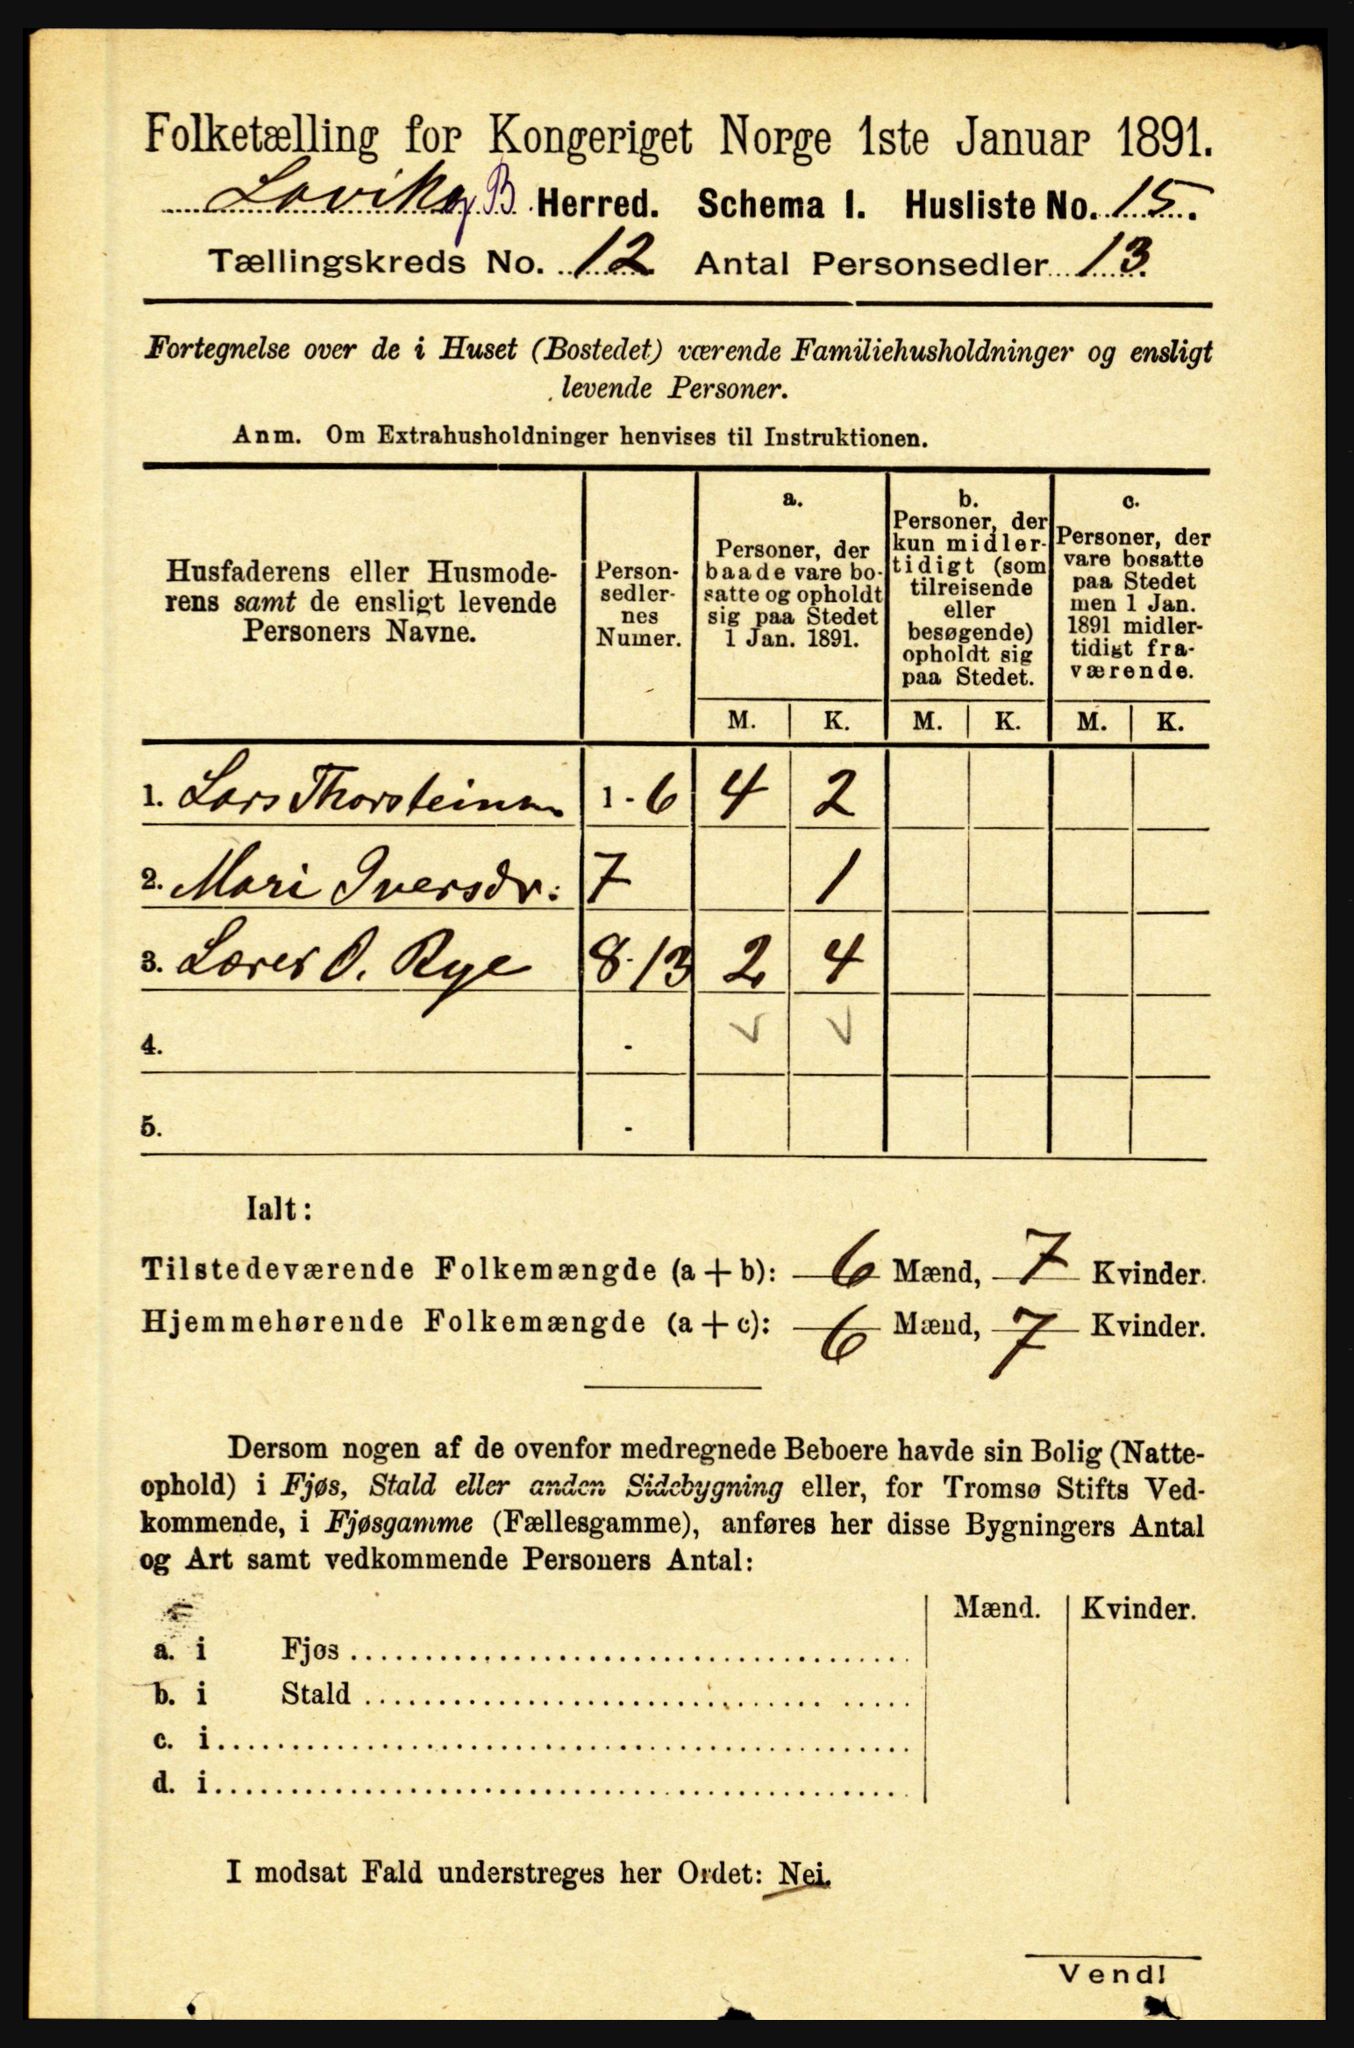 Folketælling for Kongeriget Norge 1ste Januar 1891.
Laviks og B. Herred. Schema I. Husliste No. 15.
Tællingskreds No. 12 Antal Personsedler 13.
Fortegnelse over de i Huset (Bostedet) værende Familiehusholdninger og ensligt
levende Personer.
Anm. Om Extrahusholdninger henvises til Instruktionen.
Husfaderens eller Husmode-
rens samt de ensligt levende
Personers Navne.
Person-
sedler-
nes
Numer.
a.
Personer, der
baade vare bo-
satte og opholdt
sig paa Stedet
1 Jan. 1891.
b.
Personer, der
kun midler-
tidigt (som
tilreisende
eller
besøgende)
opholdt sig
paa Stedet.
c.
Personer, der
vare bosatte
paa Stedet
men 1 Jan.
1891 midler-
tidigt fra-
værende.
M. K. M. K. M. K.
1. Lars Thorsteinsen 1 - 6 4 2
2. Mari Iversdr. 7 1
3. Lærer O. Rye 8-13 2 4
4. -
5. -
Ialt:
Tilstedeværende Folkemængde (a + b): 6 Mænd, 7 Kvinder.
Hjemmehørende Folkemængde (a + c): 6 Mænd, 7 Kvinder.
Dersom nogen af de ovenfor medregnede Beboere havde sin Bolig (Natte-
ophold) i Fjøs, Stald eller anden Sidebygning eller, for Tromsø Stifts Ved-
kommende, i Fjøsgamme (Fællesgamme), anføres her disse Bygningers Antal
og Art samt vedkommende Personers Antal:
Mænd. Kvinder.
a. i Fjøs
b. i Stald
c. i
d. i
I modsat Fald understreges her Ordet: Nei.
Vend!